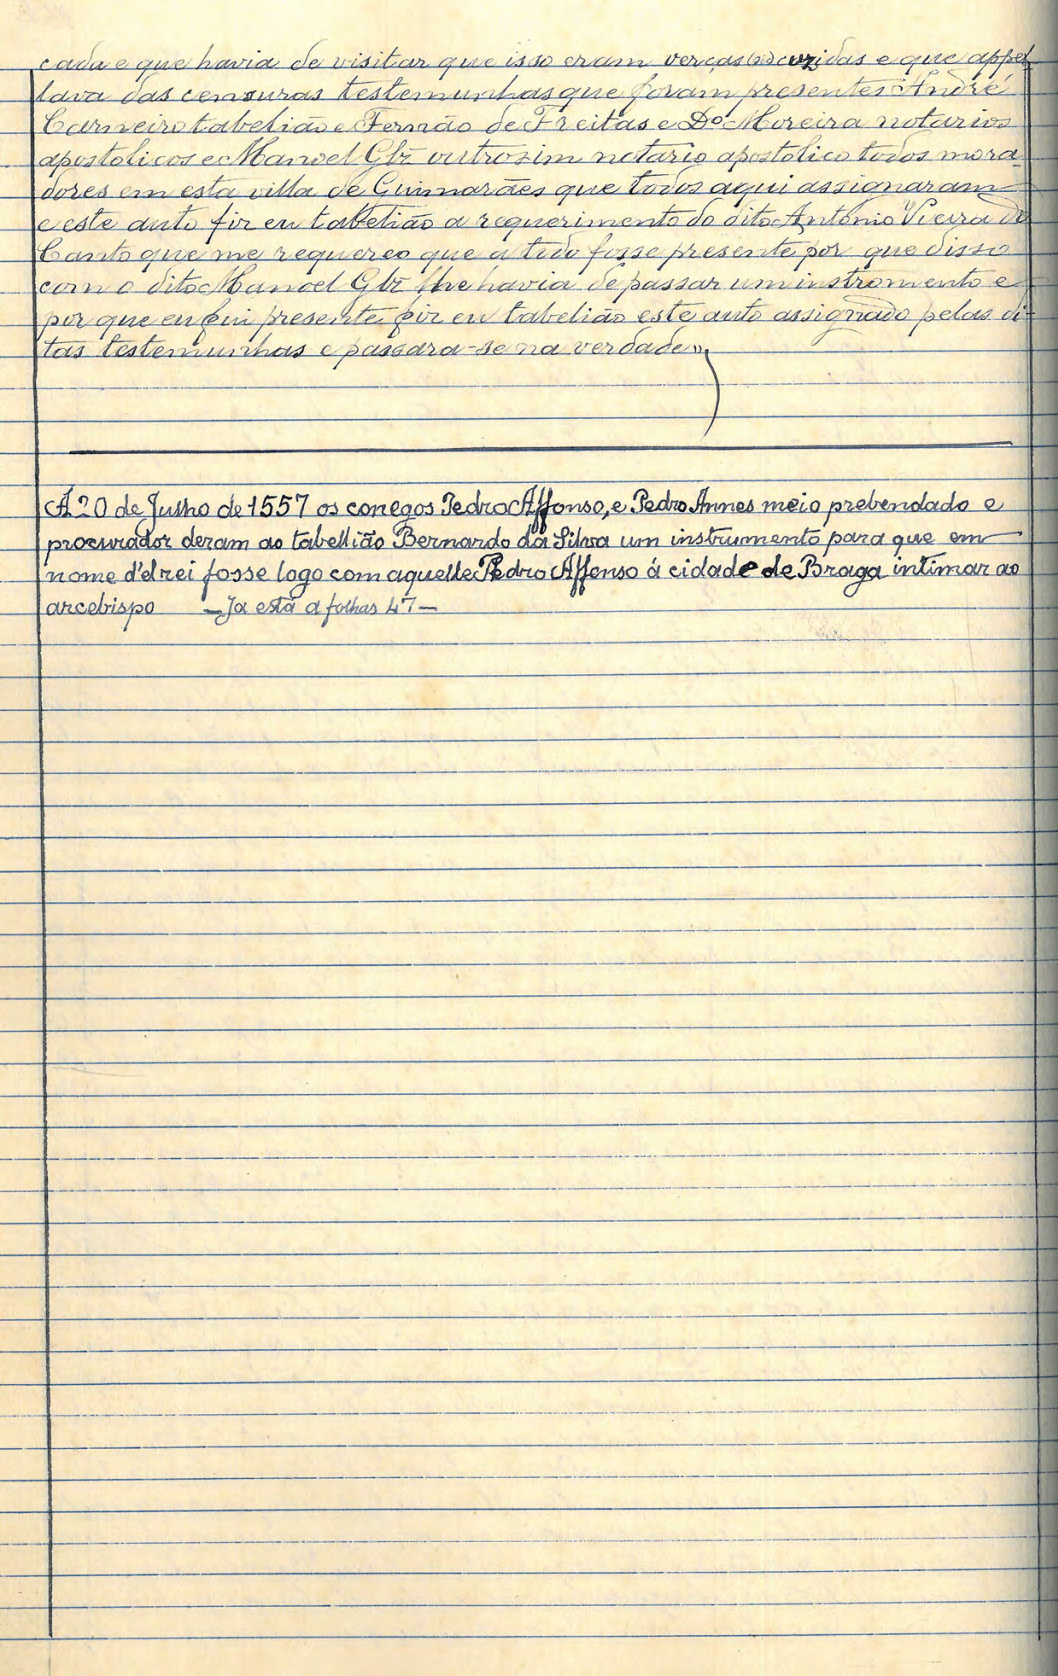 cada e que havia de visitar que isso eram verças (sic) cuzidas e que appel
lava das censuras testemunhas que foram presentes André
Carneiro tabelião e Fernão de Freitas e Dº Moreira notarios
apostolicos e Manoel Glz̃ outrosim notario apostolico todos mora-
dores em esta villa de Guimarães que todos aqui assignaram
e este auto fiz eu tabelião a requerimento do dito Antonio Vieira do
Canto que me requereo que a todo fosse presente por que disso
com o dito Manoel Glz̃ lhe havia de passar um instromento e
por que eu fui presente fiz eu tabelião este auto assignado pelas di-
tas testemunhas e passara-se na verdade»
A 20 de Julho de 1557 os conegos Pedro Affonso, e Pedro Annes meio prebendado e
procurador deram ao tabellião Bernardo da Silva um instrumento para que em
nome d'el rei fosse logo com aquelle Pedro Affonso á cidade de Braga intimar ao
arcebispo — Ja está a folhas 47 —